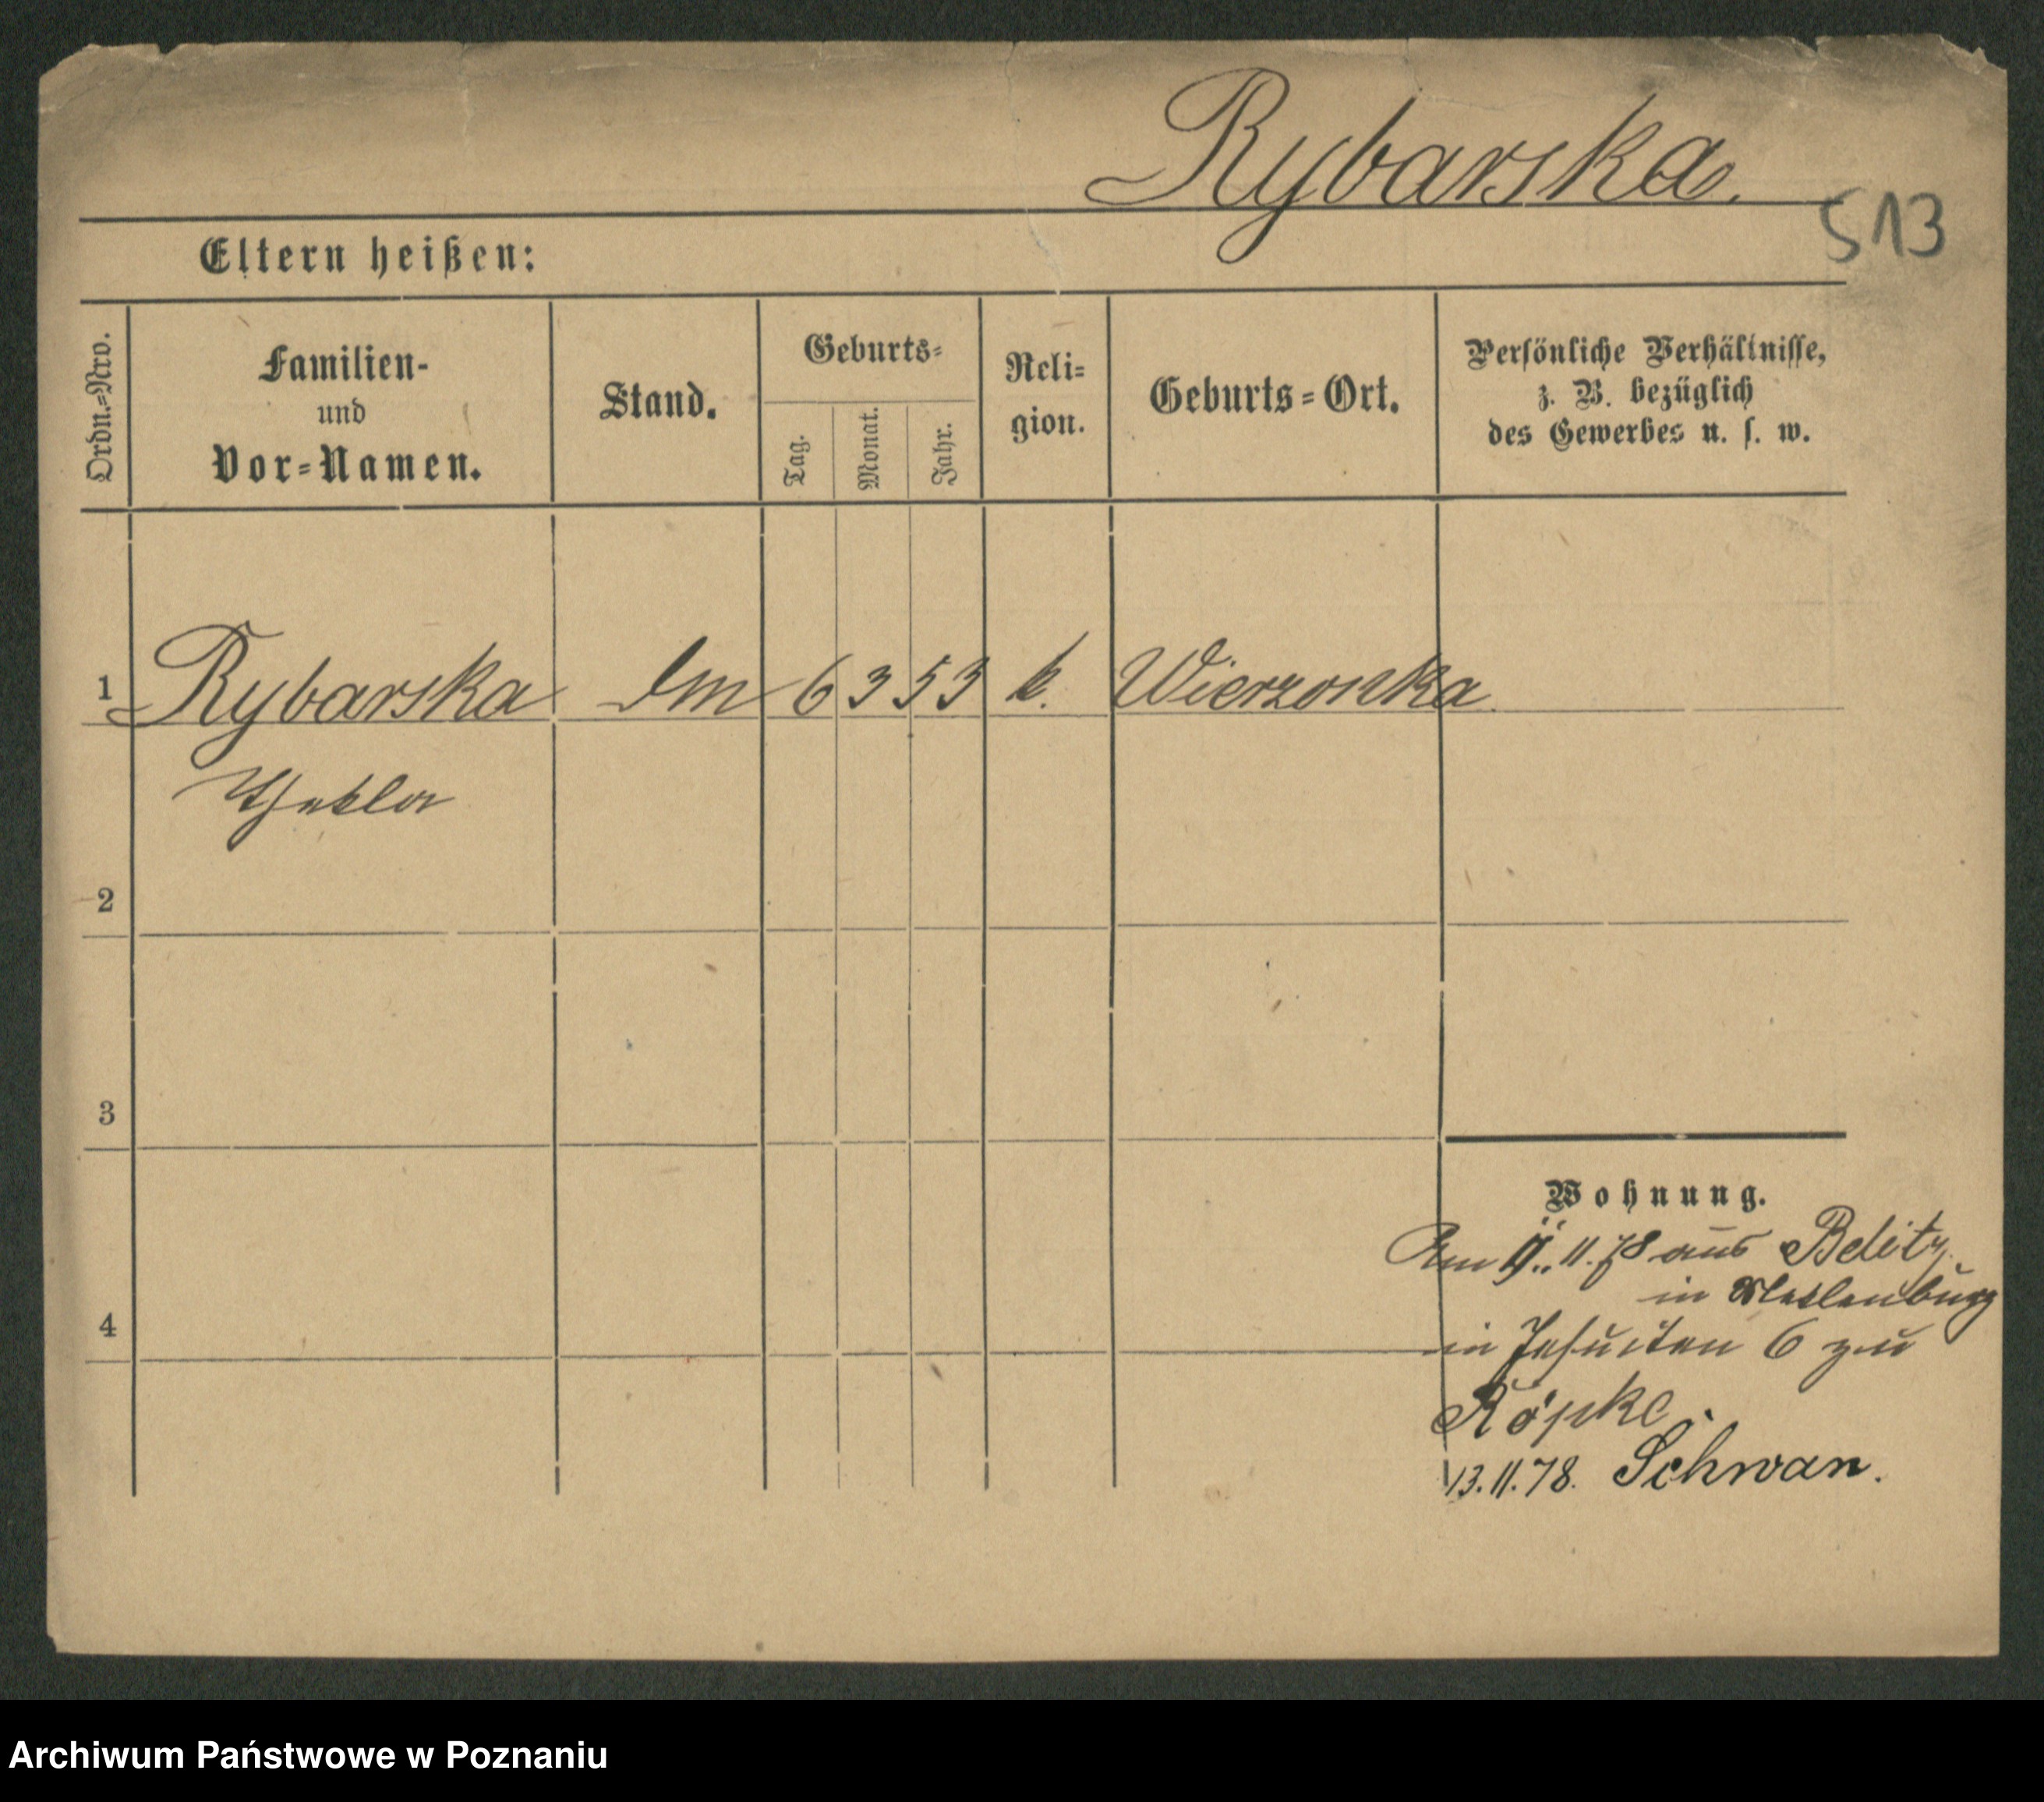 Rybarska.
513
Eltern heißen:
Ordn.=Nro.
Familien-
und
Vor=Namen.
Stand.
Geburts=
Tag.
Monat.
Jahr.
Reli=
gion.
Geburts=Ort.
Persönliche Verhältnisse,
z. B. bezüglich
des Gewerbes u. s. w.
1 Rybarska 6 3 53 k. Wierzonka
Thekla
2
3
4
Wohnung.
Am 11.78 aus Belitz
in Meklenburg
in Jesuiten 6 zu
Röpke.
13.11.78. Schwan.
Archiwum Państwowe w Poznaniu